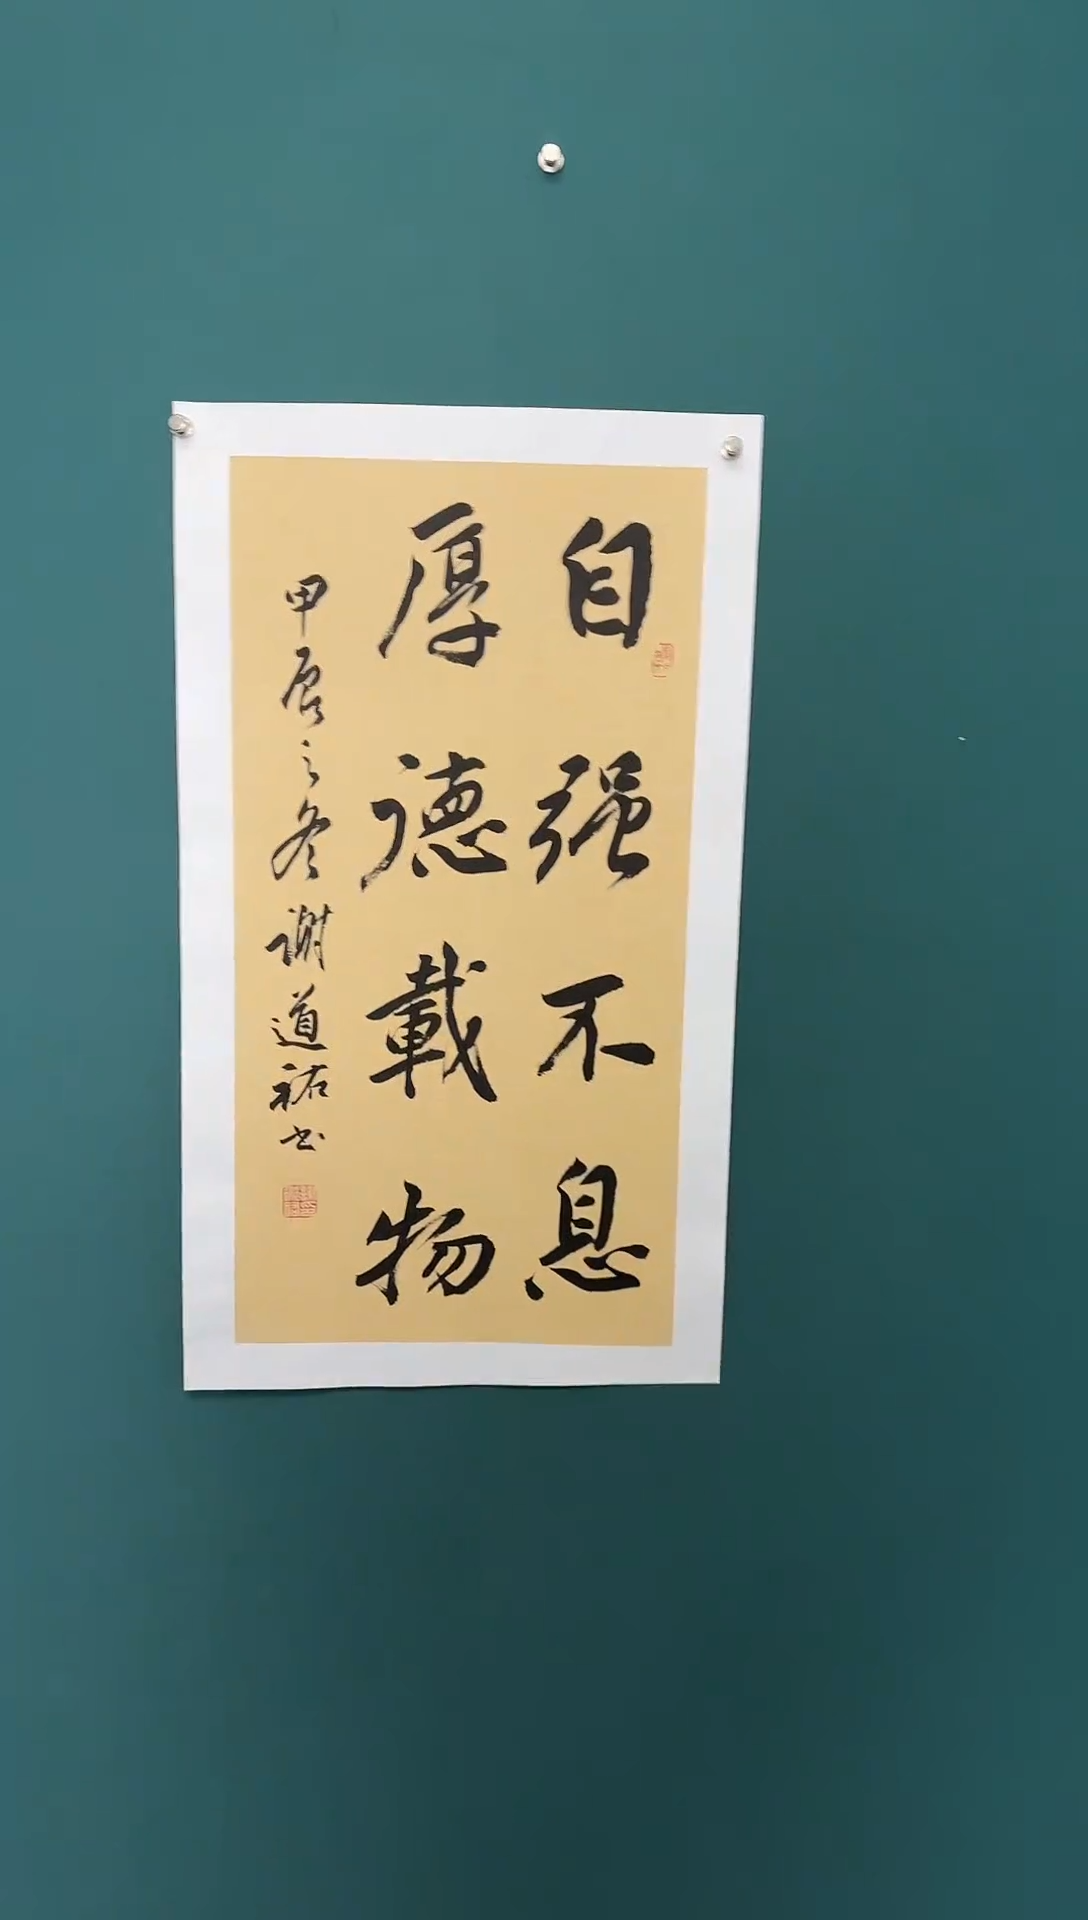 自强不息
厚德載物
甲辰之冬谢道祐书